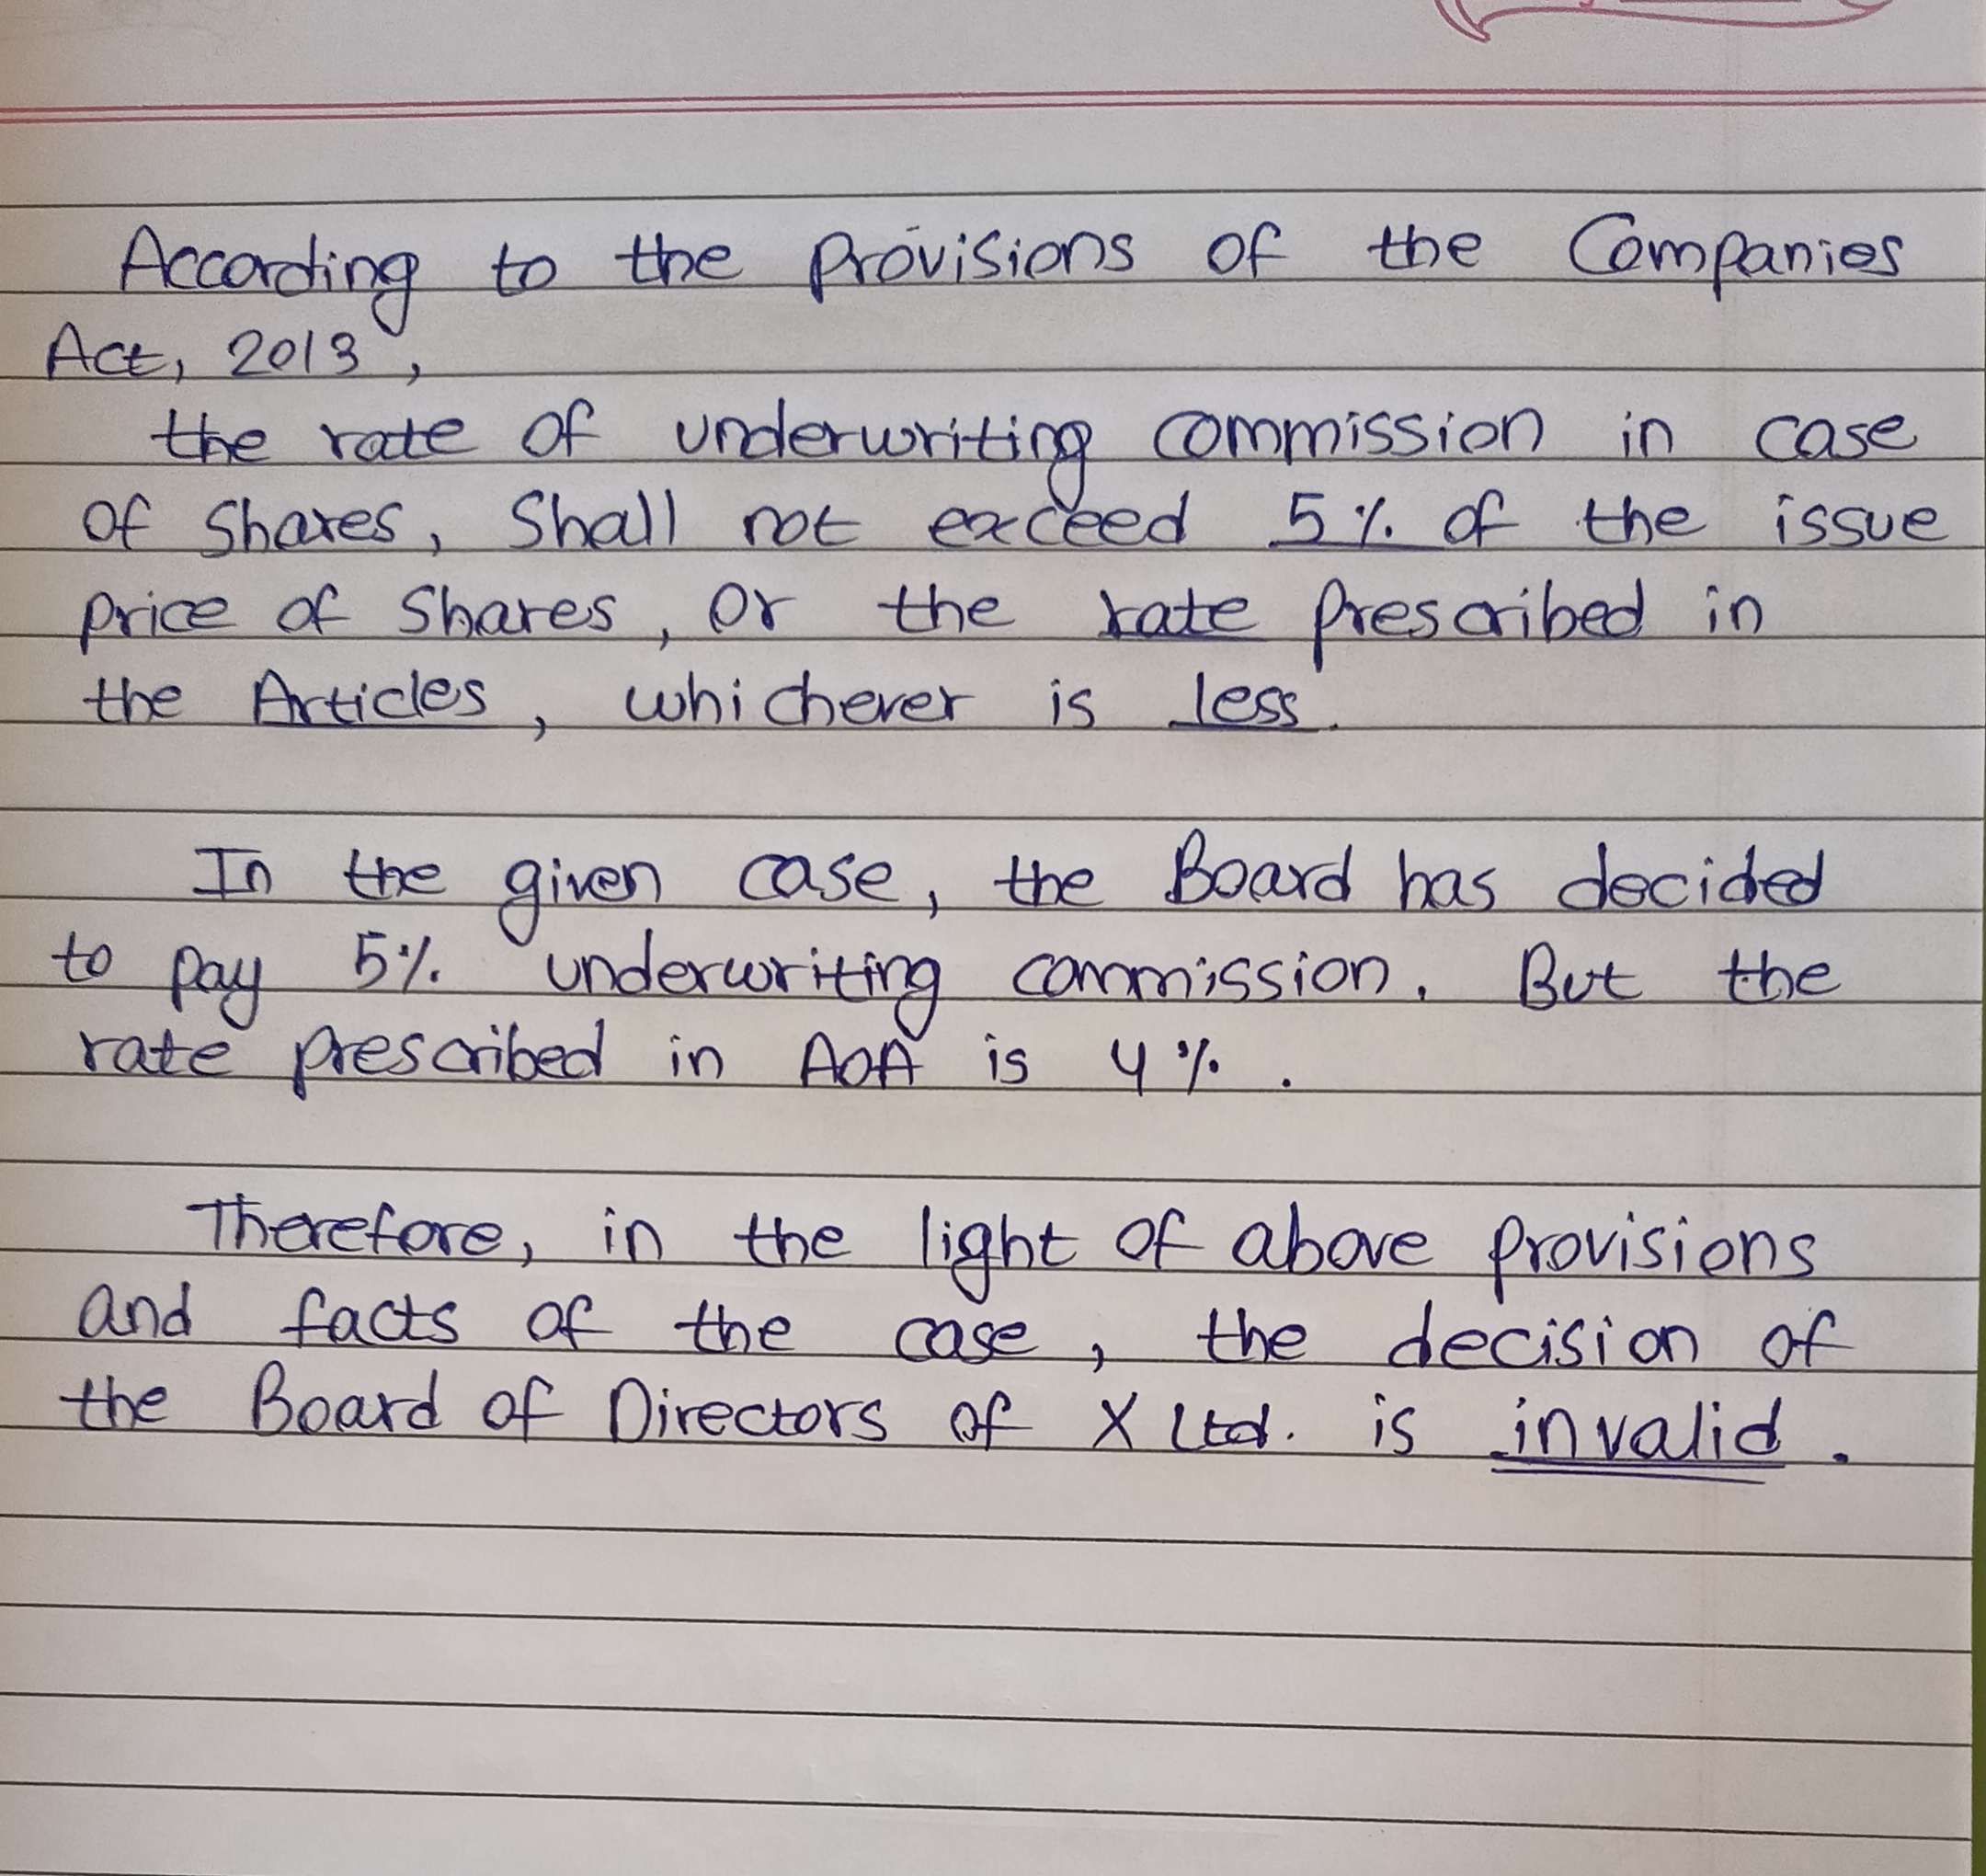 According to the provisions of the Companies
Act, 2013,
the rate of underwriting commission in case
of shares, shall not exceed 5% of the issue
price of shares, or the rate prescribed in
the Articles, whichever is less.
In the given case, the Board has decided
to pay 5% underwriting commission. But the
rate prescribed in AOA is 4%.
Therefore, in the light of above provisions
and facts of the case, the decision of
the Board of Directors of X Ltd. is invalid.